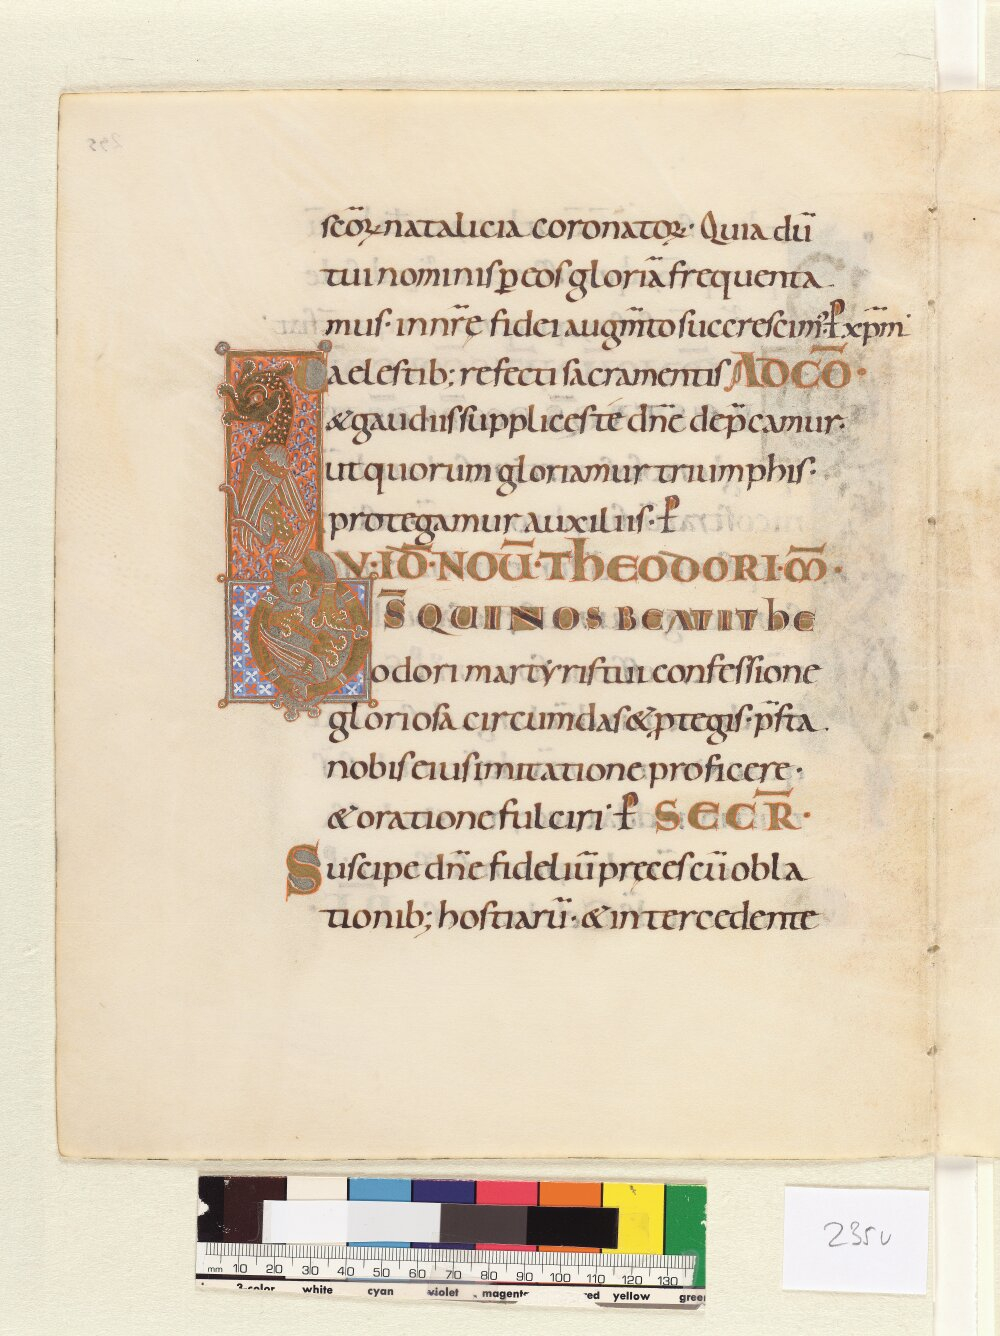 scōꝝ natalicia coronatoꝝ· Quia dū
tui nominis ꝑ eos gloriā frequenta
mus· in nr̄e fidei augm̄to succrescim᾽· ꝑ xp̄m
Caelestib; refecti sacramentis AD CŌ·
& gaudiis supplices te dn̄e dep̄camur·
ut quorum gloriamur triumphis·
protegamur auxiliis· ꝑ
V· ID· NOV̄· THEODORI· M̄·
D̄S QUI NOS BEATI THE
odori martyris tui confessione
gloriosa circumdas & ꝓtegis· p̄sta
nobis eius imitatione proficere·
& oratione fulciri ꝑ SECR̄·
Suscipe dn̄e fideliū pręces cū obla
tionib; hostiarū· & intercedente
235v
mm 10 20 30 40 50 60 70 80 90 100 110 120 130
3-color white cyan violet magenta red yellow green